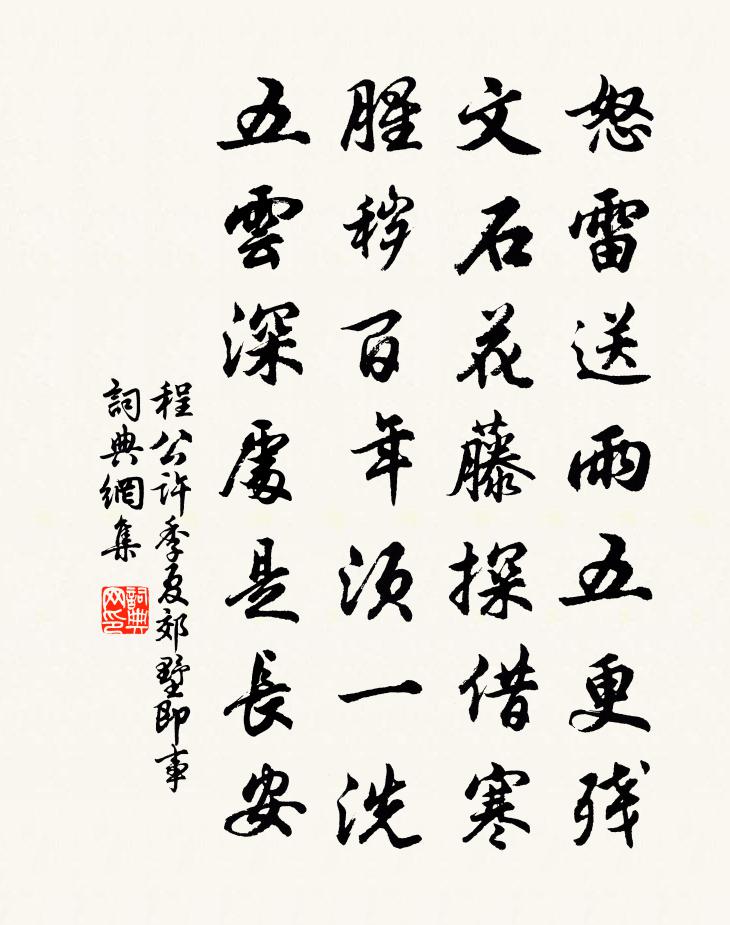 怒雷送雨五更殘
文石花藤探借寒
腥穢百年須一洗
五雲深處是長安
程公許季夏郊墅即事
詞典網集
詞典网印